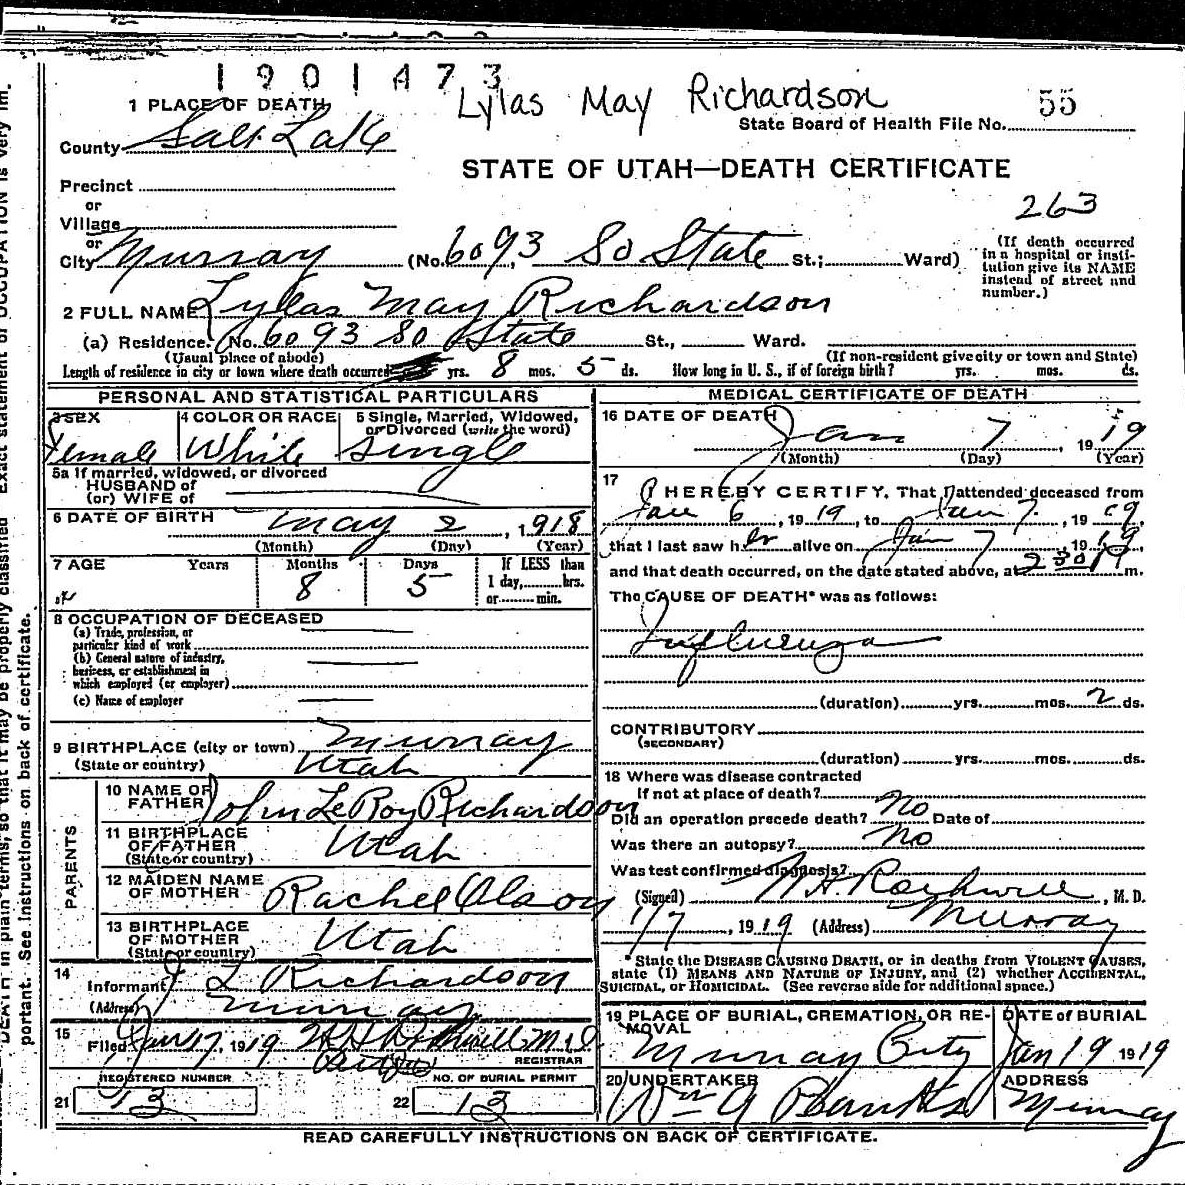 1901473
Lylas May Richardson
1 PLACE OF DEATH
County Salt Lake
State Board of Health File No. 55
Precinct
STATE OF UTAH—DEATH CERTIFICATE
or
Village
263
or
City Murray (No. 6093 So State St.; Ward)
(If death occurred in a hospital or insti-
tution give its NAME
instead of street and
number.)
2 FULL NAME Lylas May Richardson
(a) Residence. No. 6093 So State St., Ward.
(Usual place of abode) (If non-resident give city or town and State)
Length of residence in city or town where death occurred yrs. 8 mos. 5 ds. How long in U. S., if of foreign birth? yrs. mos. ds.
PERSONAL AND STATISTICAL PARTICULARS
3 SEX Female
4 COLOR OR RACE White
5 Single, Married, Widowed,
or Divorced (write the word)
Single
5a If married, widowed, or divorced
HUSBAND of
(or) WIFE of
6 DATE OF BIRTH May 2, 1918
(Month) (Day) (Year)
7 AGE Years Months 8 Days 5
If LESS than
1 day, hrs.
or min.
8 OCCUPATION OF DECEASED
(a) Trade, profession, or
particular kind of work
(b) General nature of industry,
business, or establishment in
which employed (or employer)
(c) Name of employer
9 BIRTHPLACE (city or town) Murray
(State or country) Utah
PARENTS
10 NAME OF
FATHER John LeRoy Richardson
11 BIRTHPLACE
OF FATHER Utah
(State or country)
12 MAIDEN NAME
OF MOTHER Rachel Olson
13 BIRTHPLACE
OF MOTHER Utah
(State or country)
14
Informant J L Richardson
(Address) Murray
15
Filed Jan 17, 1919
REGISTRAR
REGISTERED NUMBER
21 13
NO. OF BURIAL PERMIT
22 13
MEDICAL CERTIFICATE OF DEATH
16 DATE OF DEATH
Jan 7, 1919
(Month) (Day) (Year)
17
I HEREBY CERTIFY, That I attended deceased from
Jan 6, 1919, to Jan 7, 1919,
that I last saw her alive on Jan 7 1919,
and that death occurred, on the date stated above, at 2 30 m.
The CAUSE OF DEATH* was as follows:
Influenza
(duration) yrs. mos. 2 ds.
CONTRIBUTORY
(SECONDARY)
(duration) yrs. mos. ds.
18 Where was disease contracted
If not at place of death?
Did an operation precede death? No Date of
Was there an autopsy? No
Was test confirmed diagnosis?
(Signed) M. D.
1/7, 1919 (Address) Murray
*State the DISEASE CAUSING DEATH, or in deaths from VIOLENT CAUSES,
state (1) MEANS AND NATURE OF INJURY, and (2) whether ACCIDENTAL,
SUICIDAL, or HOMICIDAL. (See reverse side for additional space.)
19 PLACE OF BURIAL, CREMATION, OR RE-
MOVAL
Murray City
DATE of BURIAL
Jan 19 1919
20 UNDERTAKER
ADDRESS
Murray
READ CAREFULLY INSTRUCTIONS ON BACK OF CERTIFICATE.
in plain terms, so that it may be properly classified Exact statement of OCCUPATION is very im-
portant. See Instructions on back of certificate.